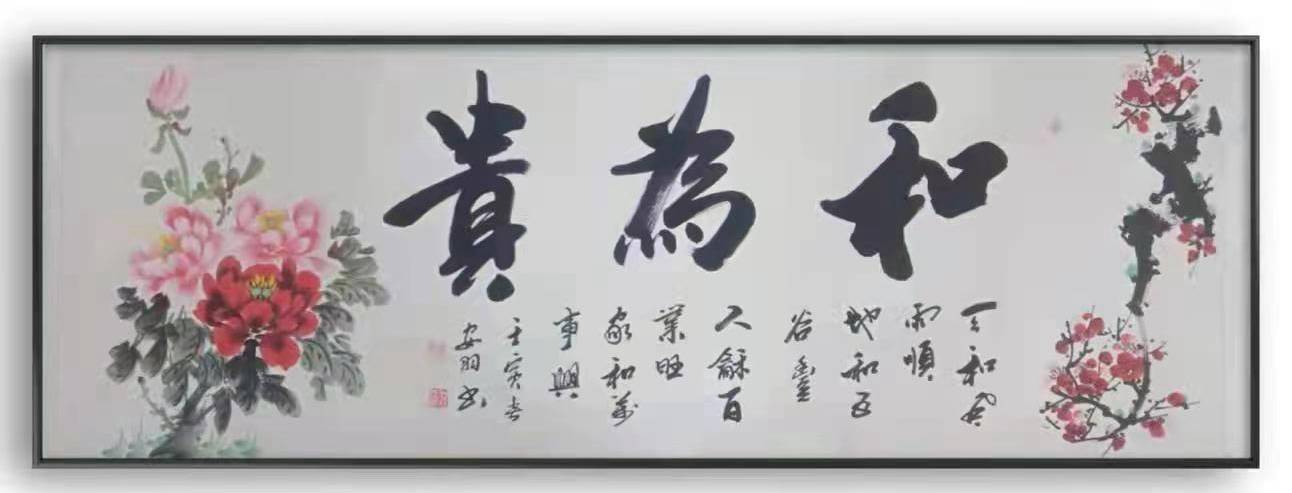 和為貴
天和風
雨順
地和五
谷豐
人龢百
業旺
家和萬
事興
壬寅春
安羽书